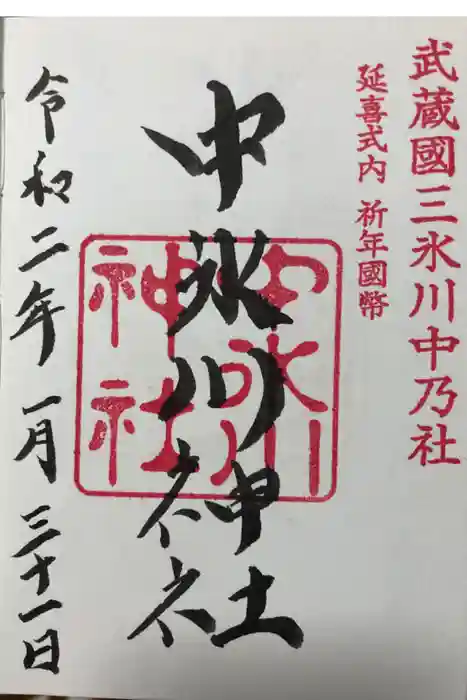 武蔵國三氷川中乃社
延喜式内 祈年國幣
中氷川神社
中氷川
神社
令和二年一月三十一日